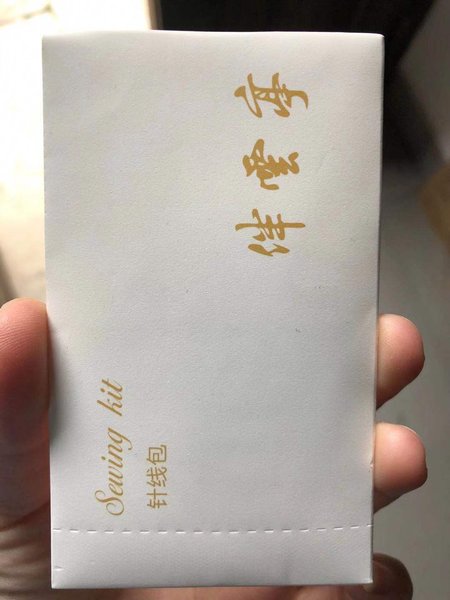 伴雲亭
Sewing kit
针线包